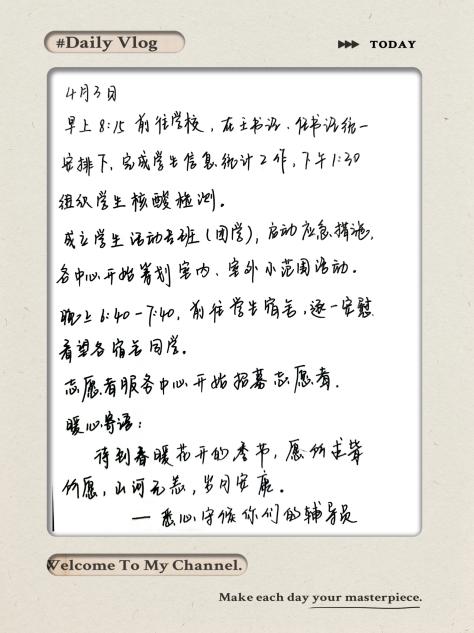 #Daily Vlog
TODAY
4月3日
早上8:15 前往学校，在王书记、任书记统一
安排下，完成学生信息统计工作，下午1:30
组织学生核酸检测。
成立学生活动专班（团学），启动应急措施，
各中心开始筹划室内、室外小范围活动。
晚上6:40-7:40，前往学生宿舍，逐一安慰
看望各宿舍同学。
志愿者服务中心开始招募志愿者。
暖心寄语：
待到春暖花开的季节，愿所求皆
所愿，山河无恙，岁月安康。
— 悉心守候你们的辅导员
Welcome To My Channel.
Make each day your masterpiece.